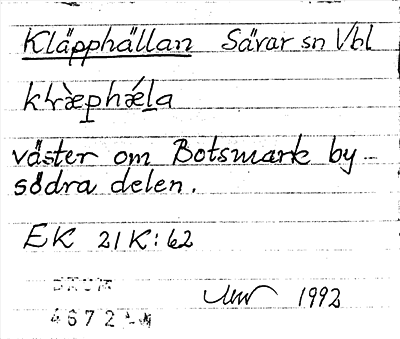 Kläpphällan Sävar sn Vbl
väster om Botsmark by
södra delen.
EK 21K:62
1992
4672